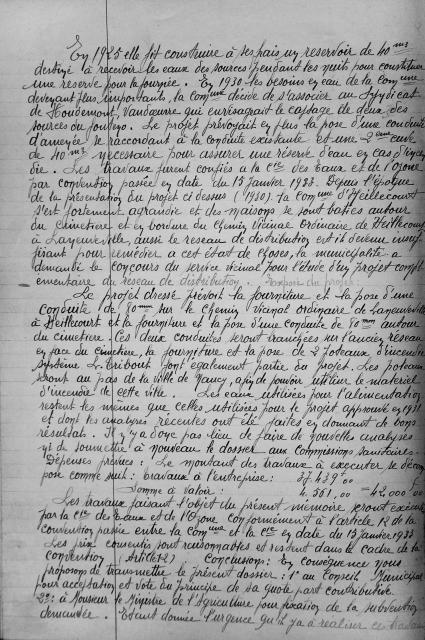 En 1925 elle fit construire à ses frais, un reservoir de 40 m3
destiné à recevoir les eaux des sources pendant les nuit pour constituer
une reserve pour la journée. En 1930 les besoins en eau de la commune
devenant plus importants, la comune décide de s'associer au Syndicat
de Houdemont, Vandœuvre qui envisageait le captage de deux des
sources du
Le projet prévoyait en plus la pose d'une conduite
d'amenée se raccordant à la conduite existante et une 2ème cuve
de 40 m3 nécessaire pour assurer une réserve d'eau en cas d'incen
die. Les travaux furent confiés à la Cie des Eaux et de l'Ozone
par convention passée en date du 13 Janvier 1933. Depuis l'époque
de la présentation du projet ci dessus (1930) la comune d'Heillecourt
s'est fortement agrandie et des maisons se sont baties autour
du cimetière et en bordure du chemin vicinal ordinaire de Heillecourt
à Laneuveville, aussi le reseau de distribution est il devenu insuf
fisant pour remédier a cet état de choses, la municipalité a
demandé le concours du service vicinal pour l'étude d'un projet compl
ementaire du reseau de distribution. Exposé du projet:
Le projet dressé prévoit la fourniture et la pose d'une
conduite de 80mm sur le chemin vicinal ordinaire de Laneuveville
à Heillecourt et la fourniture et la pose d'une conduite de 80mm autour
du cimetière. Ces deux conduites seront branchées sur l'ancien réseau
en face du cimetière, la fourniture et la pose de 2 poteaux d'incendie
système L. Tribout font également partie du projet. Les poteaux
seront au pas de la ville de Nancy, afin de pouvoir utiliser le materiel
d'incendie de cette ville. Les eaux utilisées pour l'alimentation
restent les mêmes que celles utilisées pour le projet approuvé en 1931
et dont les analyses récentes ont été faites en donnant de bons
résultats. Il n'y a donc pas lieu de faire de nouvelles analyses
ni de soumettre à nouveau le dossier aux Commissions sanitaires.
Dépenses prévues: Le montant des travaux à executer se décom
pose comme suit: travaux à l'entreprise: 37.439,00
Somme à valoir: 4.561,00 = 42.000,00
Les travaux faisant l'objet du présent mémoire seront executés
par la Cie des Eaux et de l'Ozone conformément à l'article 12 de la
convention passée entre la comune et la Cie en date du 13 Janvier 1933
Les prix consentis sont raisonnables et restent dans le cadre de la
convention (Article 12) Conclusions: En conséquence nous
proposons de transmettre le présent dossier: 1° au Conseil Municipal
pour acceptation et vote du principe de sa quote part contributive.
2°: à Monsieur le Ministre de l'Agriculture pour fixation de la subvention
demandée. Etant donnée l'urgence qu'il y a à réaliser ces travaux